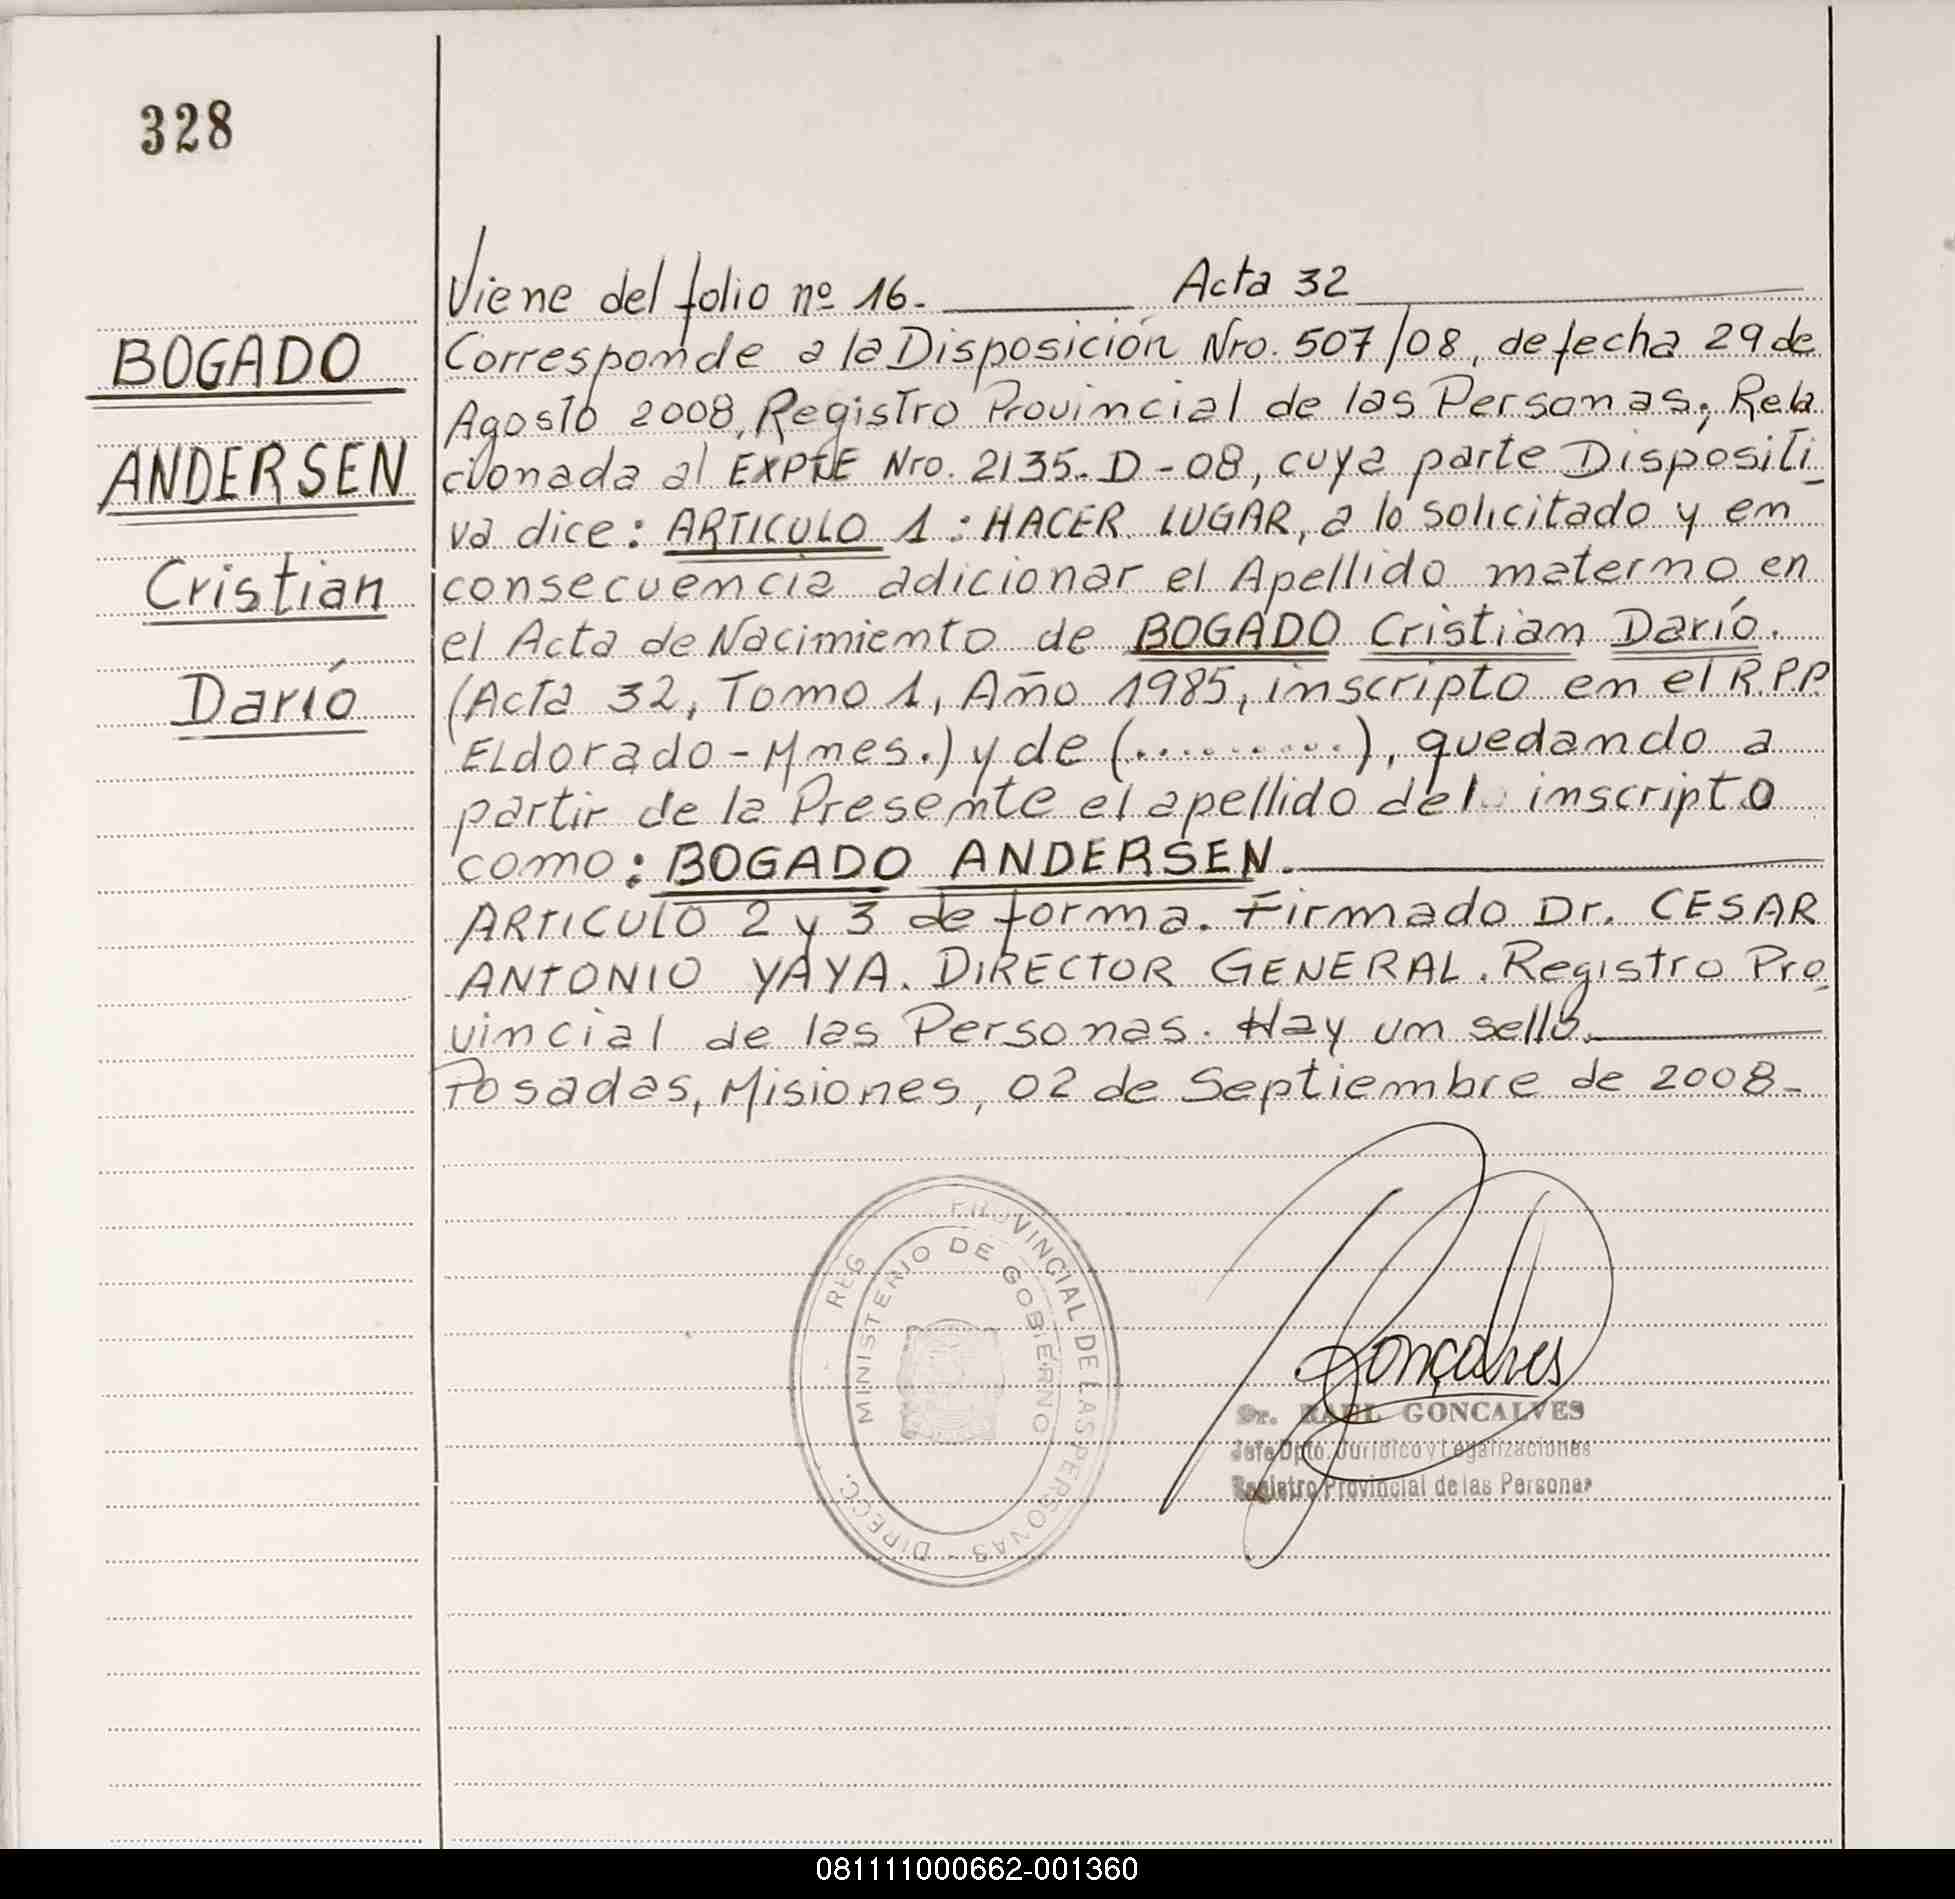 328
BOGADO
ANDERSEN
Cristian
Darío
Viene del folio nº 16. Acta 32
Corresponde a la Disposición Nro. 507/08, de fecha 29 de
Agosto 2008, Registro Provincial de las Personas, Rela
cionada al EXPTE Nro. 2135-D-08, cuya parte Dispositi_
va dice: ARTICULO 1: HACER LUGAR, a lo solicitado y en
consecuencia adicionar el Apellido materno en
el Acta de Nacimiento de BOGADO Cristian Darío.
(Acta 32, Tomo 1, Año 1985, inscripto en el R.P.P.
ELdorado - Mnes.) y de (..........), quedando a
partir de la Presente el apellido del inscripto
como: BOGADO ANDERSEN.
ARTICULO 2 y 3 de forma. Firmado Dr. CESAR
ANTONIO YAYA. DIRECTOR GENERAL. Registro Pro_
vincial de las Personas. Hay un sello.
Posadas, Misiones, 02 de Septiembre de 2008-
DIRECC. REG PROVINCIAL DE LAS PERSONAS -
MINISTERIO DE GOBIERNO
Gonçalves
Dr. RAUL GONCALVES
Jefe Dpto. Jurídico y Legalizaciones
Registro Provincial de las Personas
081111000662-001360